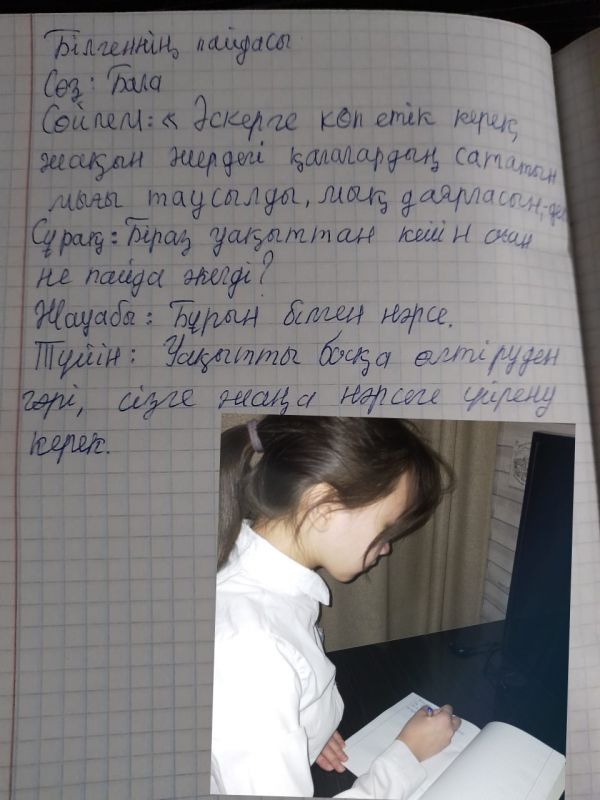 Білгеннің пайдасы
Сөз: Бала
Сөйлем: « Әскерге көп етік керек,
жақын жердегі қалалардың сататын
мығы таусылды, мық даярласын,-деп
Сұрақ: Біраз уақыттан кейін оған
не пайда әкелді?
Жауабы: Бұрын білген нәрсе.
Түйін: Уақытты босқа өлтіруден
гөрі, сізге жаңа нәрсеге үйрену
керек.